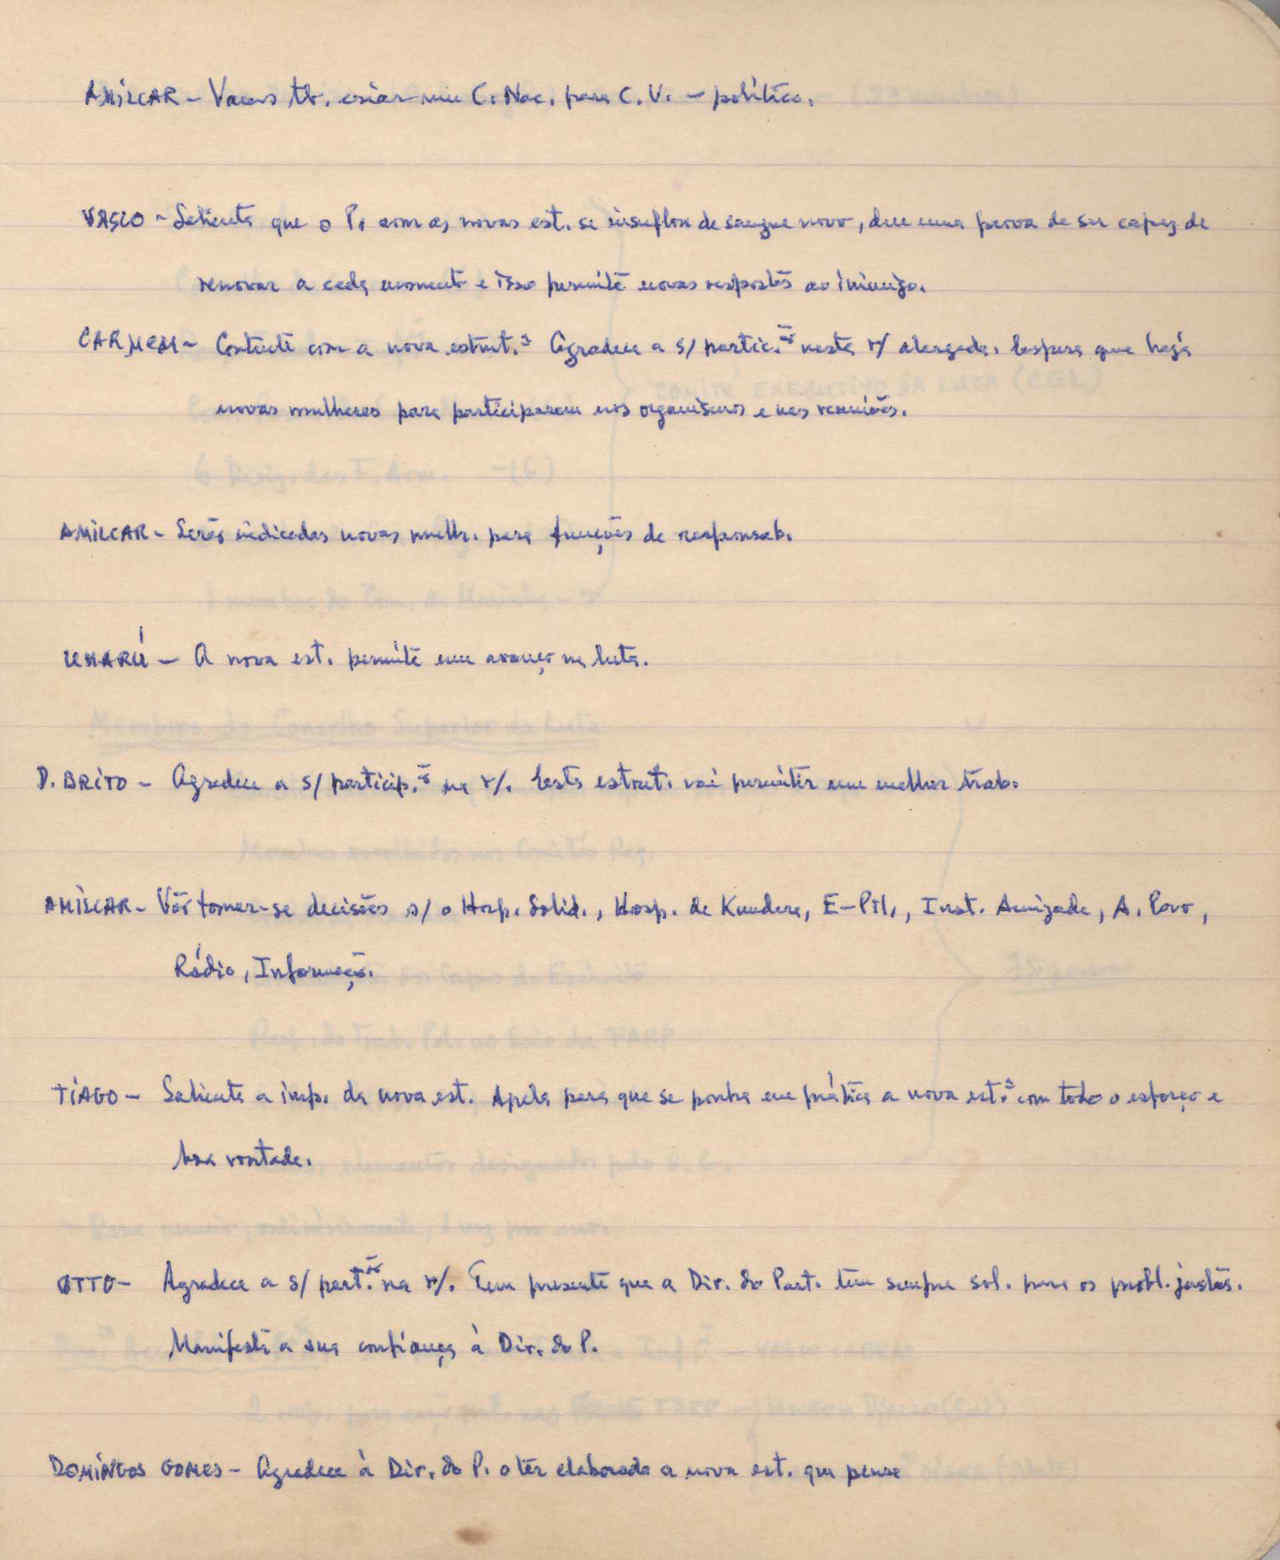 AMÍLCAR - Vamos tb. criar um C. Nac. para C.V. - política.
VASCO - Salienta que o P. com as novas est. se insuflou de sangue novo, deu uma prova de ser capaz de
renovar a cada momento e isso permite novas respostas ao inimigo.
CARMEM - Contente com a nova estrut.ª Agradece a s/ partic.ão nesta r/ alargada. Espera que haja
novas mulheres para participarem nos organismos e nas reuniões.
AMILCAR - Serão indicadas novas mulh. para funções de responsab.
UMARÚ - A nova est. permite um avanço na luta.
D. BRITO - Agradece a s/ particip.ão na r/. Esta estrut. vai permitir um melhor trab.
AMÍLCAR - Vão tomar-se decisões s/ o Hosp. Solid., Hosp. de Kundara, E-Pil., Inst. Amizade, A. Povo,
Rádio, Informação.
TIAGO - Salienta a imp. da nova est. Apela para que se ponha em prática a nova est.ª com todo o esforço e
boa vontade.
OTTO - Agradece a s/ part.ão na r/. Tem presente que a Dir. do Part. tem sempre sol. para os probl. justas.
Manifesta a sua confiança à Dir. do P.
DOMINGOS GOMES - Agradece à Dir. do P. o ter elaborado a nova est. que pensa